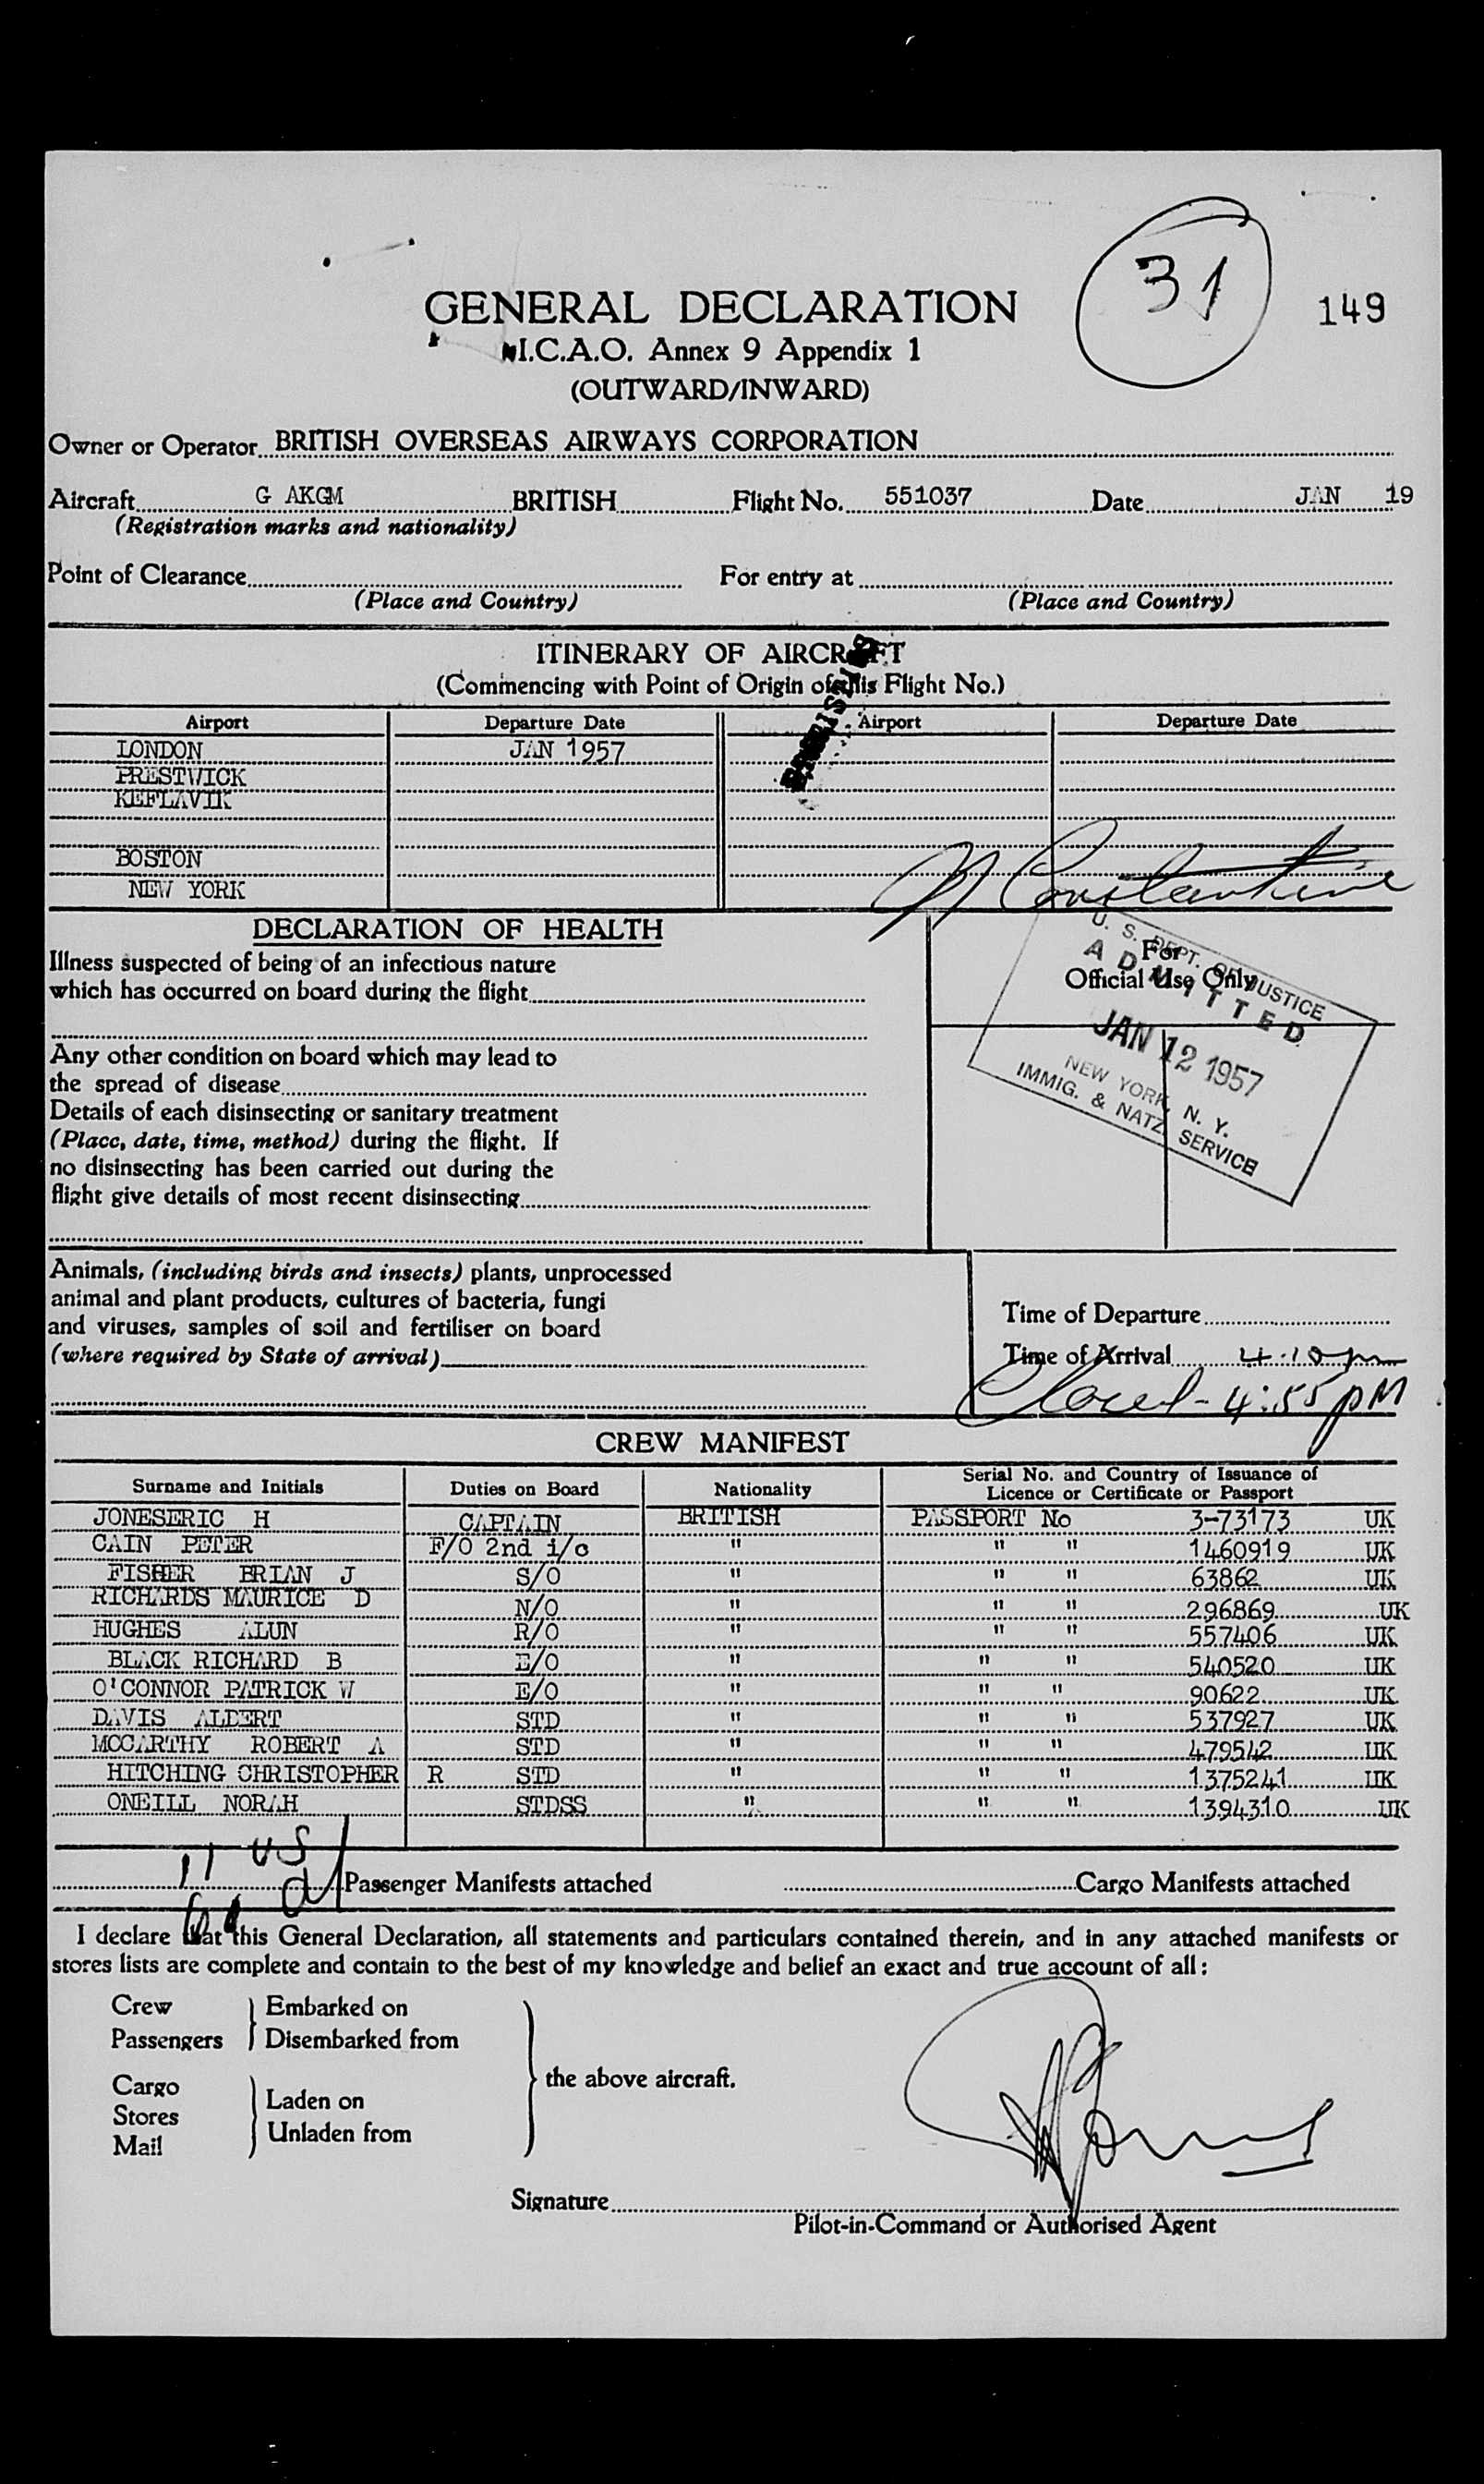 31
149
GENERAL DECLARATION
I.C.A.O. Annex 9 Appendix 1
(OUTWARD/INWARD)
Owner or Operator BRITISH OVERSEAS AIRWAYS CORPORATION
Aircraft G AKGM BRITISH Flight No. 551037 Date JAN 19
(Registration marks and nationality)
Point of Clearance For entry at
(Place and Country) (Place and Country)
ITINERARY OF AIRCRAFT
(Commencing with Point of Origin of this Flight No.)
Airport Departure Date Airport Departure Date
LONDON JAN 1957
PRESTWICK
KEFLAVIK
BOSTON
NEW YORK
N Constantine
DECLARATION OF HEALTH
Illness suspected of being of an infectious nature
which has occurred on board during the flight
For
Official Use Only
U. S. DEPT. OF JUSTICE
ADMITTED
JAN 12 1957
NEW YORK, N. Y.
IMMIG. & NATZ. SERVICE
Any other condition on board which may lead to
the spread of disease
Details of each disinsecting or sanitary treatment
(Place, date, time, method) during the flight. If
no disinsecting has been carried out during the
flight give details of most recent disinsecting
Animals, (including birds and insects) plants, unprocessed
animal and plant products, cultures of bacteria, fungi
and viruses, samples of soil and fertiliser on board
(where required by State of arrival)
Time of Departure
Time of Arrival 4.10 pm
Closed - 4:55 PM
CREW MANIFEST
Surname and Initials Duties on Board Nationality Serial No. and Country of Issuance of
Licence or Certificate or Passport
JONESERIC H CAPTAIN BRITISH PASSPORT No 3-73173 UK
CAIN PETER F/O 2nd i/c " " " 1460919 UK
FISHER BRIAN J S/O " " " 63862 UK
RICHARDS MAURICE D N/O " " " 296869 UK
HUGHES ALUN R/O " " " 557406 UK
BLACK RICHARD B E/O " " " 540520 UK
O'CONNOR PATRICK W E/O " " " 90622 UK
DAVIS ALBERT STD " " " 537927 UK
MCCARTHY ROBERT A STD " " " 479542 UK
HITCHING CHRISTOPHER R STD " " " 1375241 UK
ONEILL NORAH STDSS " " " 1394310 UK
11 US
Passenger Manifests attached Cargo Manifests attached
I declare that this General Declaration, all statements and particulars contained therein, and in any attached manifests or
stores lists are complete and contain to the best of my knowledge and belief an exact and true account of all:
Crew Embarked on
Passengers Disembarked from
the above aircraft.
Cargo Laden on
Stores Unladen from
Mail
Signature
Pilot-in-Command or Authorised Agent